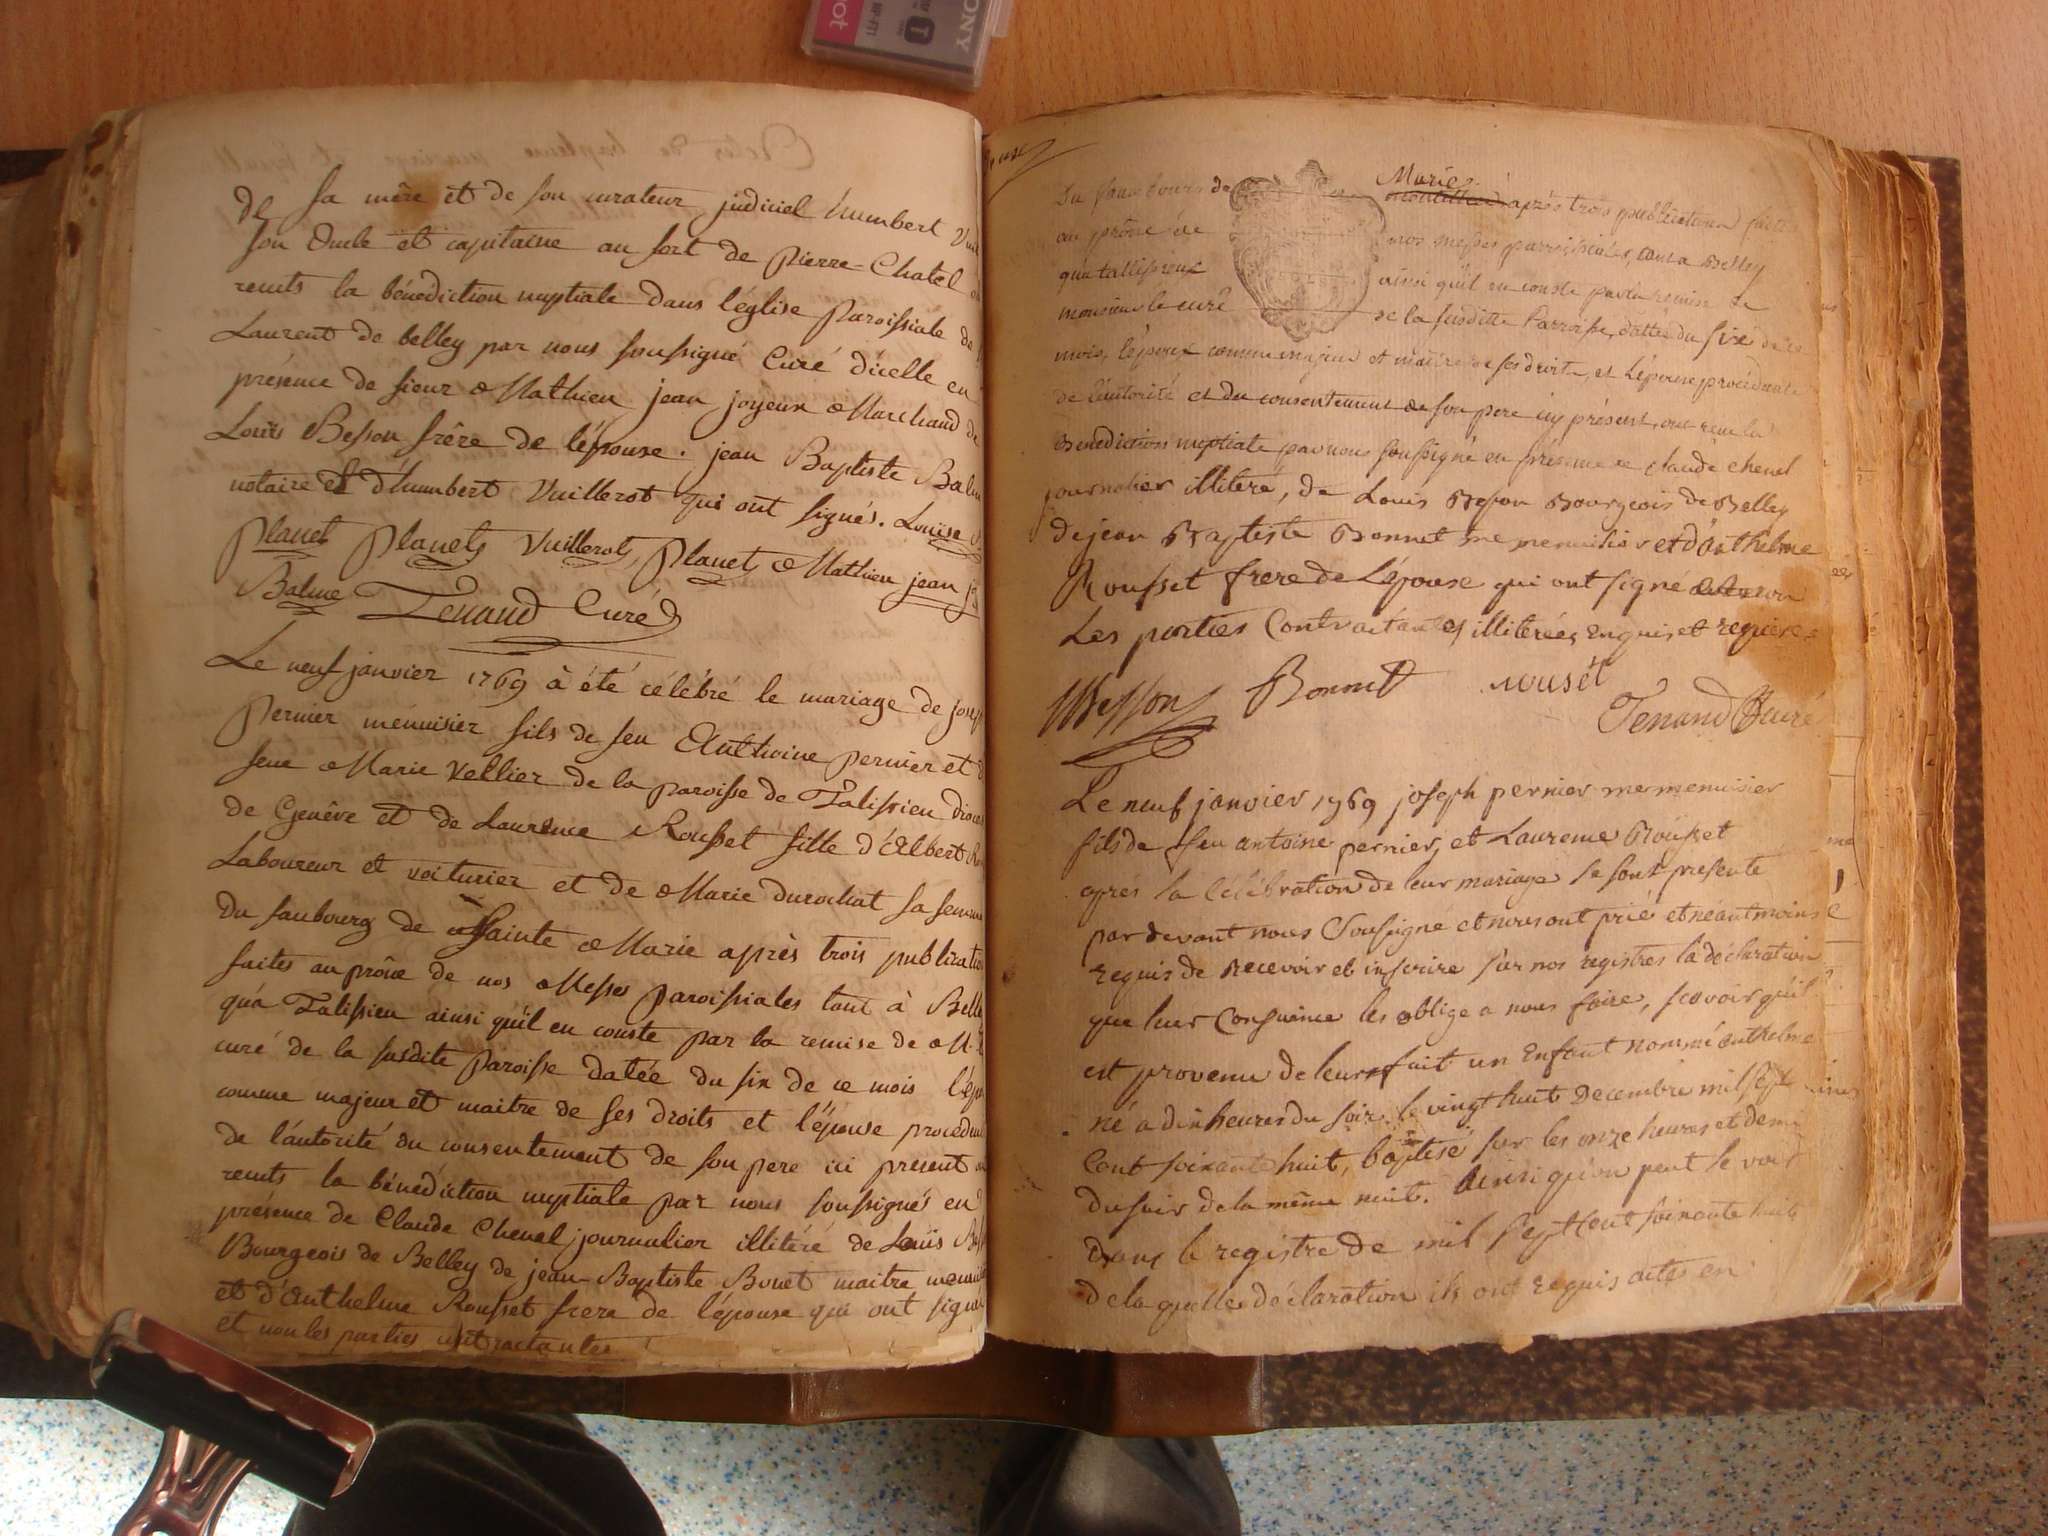 SONY
de sa mère et de son curateur judiciel humbert
son Oncle et capitaine au fort de pierre-Chatel
recuts la bénédiction nuptiale dans l'église Paroissiale de
Laurent de belley par nous soussigné Curé d'icelle en
présence de sieur Mathieu jean joyeux Marchand de
Louïs Besson frère de l'épouse. jean Baptiste
notaire et d'humbert Vuillerot qui ont signés. Louïse
planet planet Vuillerot, planet Mathieu jean
Balme Tenand Curé
Le neuf janvier 1769 à été célébré le mariage de
Pernier menuisier fils de feu Anthoine pernier et
feue Marie Vellier de la paroisse de Talissieu
de Genêve et de Laurence Rousset fille d'Albert
Laboureur et voiturier et de Marie durochat sa femme
du faubourg de Sainte Marie après trois
faites au prône de nos Messes paroissiales tant à
qu'a Talissieu ainsi qu'il en conste par la remise de M.
curé de la susdite Paroisse datée du six de ce mois
comme majeur et maitre de ses droits et l'épouse
de l'autorité du consentement de son pere ici présent
recuts la bénédiction nuptiale par nous soussignés en
présence de Claude Chenel journalier illitéré de Louïs
Bourgeois de Belley de jean-Baptiste Bonet maitre
et d'Anthelme Rousset frere de l'épouse qui ont
et non les parties contractantes
du faubourg de Marie après trois publications faites
au prône de nos messes parroissiales, tant a Belley
qu'a tallissieux ainsi quil en conste par la remise de
monsieur le curé de la susditte Parroisse, dattée du sixe de ce
mois, l'époux comme majeur et maitre de ses droits, et l'épouse procédante
de l'autorité et du consentement de son pere icy présent, ont recu la
Bénédiction nuptiale par nous soussigné en présence de claude chenel
journalier illitéré, de Louis Besson Bourgeois de Belley
de jean Baptiste Bonnet me menuisier et d'Anthelme
Rousset frere de L'épouse qui ont signé et non
Les parties Contractantes illiterées enquis et requises
Besson Bonnet rousét
Tenand Curé
Le neuf janvier 1769 joseph pernier me menuisier
fils de feu antoine pernier, et Laurence Rousset
après la Célébration de leur mariage se sont presente
pardevant nous Soussigné et nous ont prié et néantmoins
requis de recevoir et inscrire sur nos registres la déclaration
que leur Conscience les oblige a nous faire, scavoir qu'il
est provenu de leur fait un Enfant nommé anthelme
né a dix heures du soir le vingt huit Decembre mil sept
Cent soixante huit, baptisé sur les onze heures et demi
du soir de la même nuit. Ainsi qu'on peut le voir
dans le registre de mil sept Cent soixante huit
de la quelle déclaration ils ont requis actes en